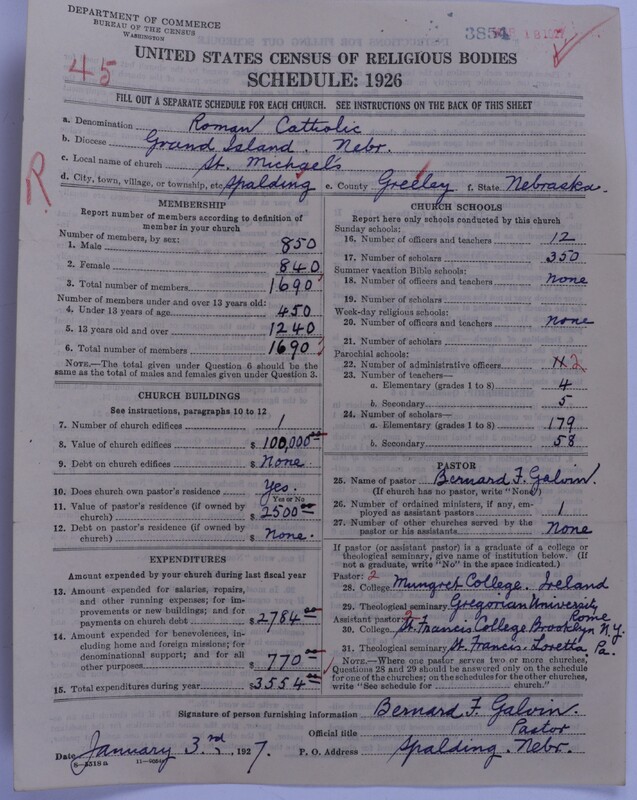 DEPARTMENT OF COMMERCE
BUREAU OF THE CENSUS
WASHINGTON
3854
45
UNITED STATES CENSUS OF RELIGIOUS BODIES
SCHEDULE: 1926
FILL OUT A SEPARATE SCHEDULE FOR EACH CHURCH. SEE INSTRUCTIONS ON THE BACK OF THIS SHEET
a. Denomination Roman Catholic
b. Diocese Grand Island. Nebr.
c. Local name of church St. Michael's
d. City, town, village, or township, etc. Spalding e. County Greeley f. State Nebraska.
R
MEMBERSHIP
Report number of members according to definition of member in your church
Number of members, by sex:
1. Male 850
2. Female 840
3. Total number of members 1690
Number of members under and over 13 years old:
4. Under 13 years of age 450
5. 13 years old and over 1240
6. Total number of members 1690
NOTE.—The total given under Question 6 should be the same as the total of males and females given under Question 3.
CHURCH BUILDINGS
See instructions, paragraphs 10 to 12
7. Number of church edifices 1
8. Value of church edifices $ 100,000.00
9. Debt on church edifices $ None.
10. Does church own pastor's residence Yes.
Yes or No
11. Value of pastor's residence (if owned by church) $ 2500.00
12. Debt on pastor's residence (if owned by church) $ None.
EXPENDITURES
Amount expended by your church during last fiscal year
13. Amount expended for salaries, repairs, and other running expenses; for improvements or new buildings; and for payments on church debt $ 2784.00
14. Amount expended for benevolences, including home and foreign missions; for denominational support; and for all other purposes $ 770.00
15. Total expenditures during year $ 3554.00
CHURCH SCHOOLS
Report here only schools conducted by this church
Sunday schools:
16. Number of officers and teachers 12
17. Number of scholars 350
Summer vacation Bible schools:
18. Number of officers and teachers None
19. Number of scholars
Week-day religious schools:
20. Number of officers and teachers None
21. Number of scholars
Parochial schools:
22. Number of administrative officers 2
23. Number of teachers—
a. Elementary (grades 1 to 8) 4
b. Secondary 5
24. Number of scholars—
a. Elementary (grades 1 to 8) 179
b. Secondary 58
PASTOR
25. Name of pastor Bernard F. Galvin.
(If church has no pastor, write "None")
26. Number of ordained ministers, if any, employed as assistant pastors 1
27. Number of other churches served by the pastor or his assistants None
If pastor (or assistant pastor) is a graduate of a college or theological seminary, give name of institution below. (If not a graduate, write "No" in the space indicated.)
Pastor: 2
28. College Mungret College. Ireland
29. Theological seminary Gregorian University Rome
Assistant pastor: 2
30. College St. Francis College Brooklyn N.Y.
31. Theological seminary St. Francis. Loretta Pa.
NOTE.—Where one pastor serves two or more churches, Questions 28 and 29 should be answered only on the schedule for one of the churches; on the schedules for the other churches, write "See schedule for ______ church."
Signature of person furnishing information Bernard F. Galvin.
Official title Pastor
Date January 3.rd, 1927. P. O. Address Spalding. Nebr.
8-5518 a